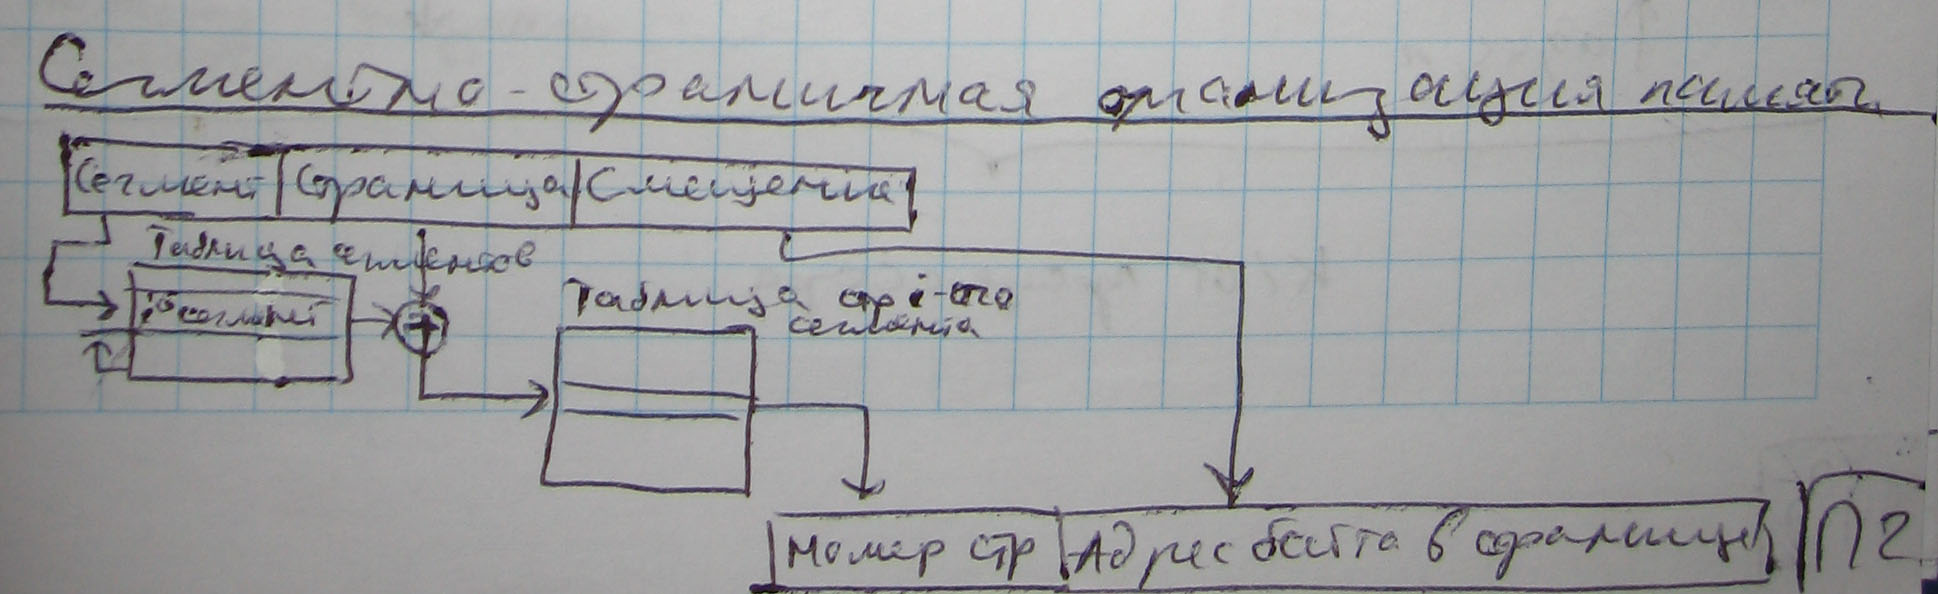 Сегментно-страничная организация памяти
Сегмент Страница Смещение
Таблица сегментов
сегмент
Таблица стр i-ого
сегмента
Номер стр Адрес байта в странице